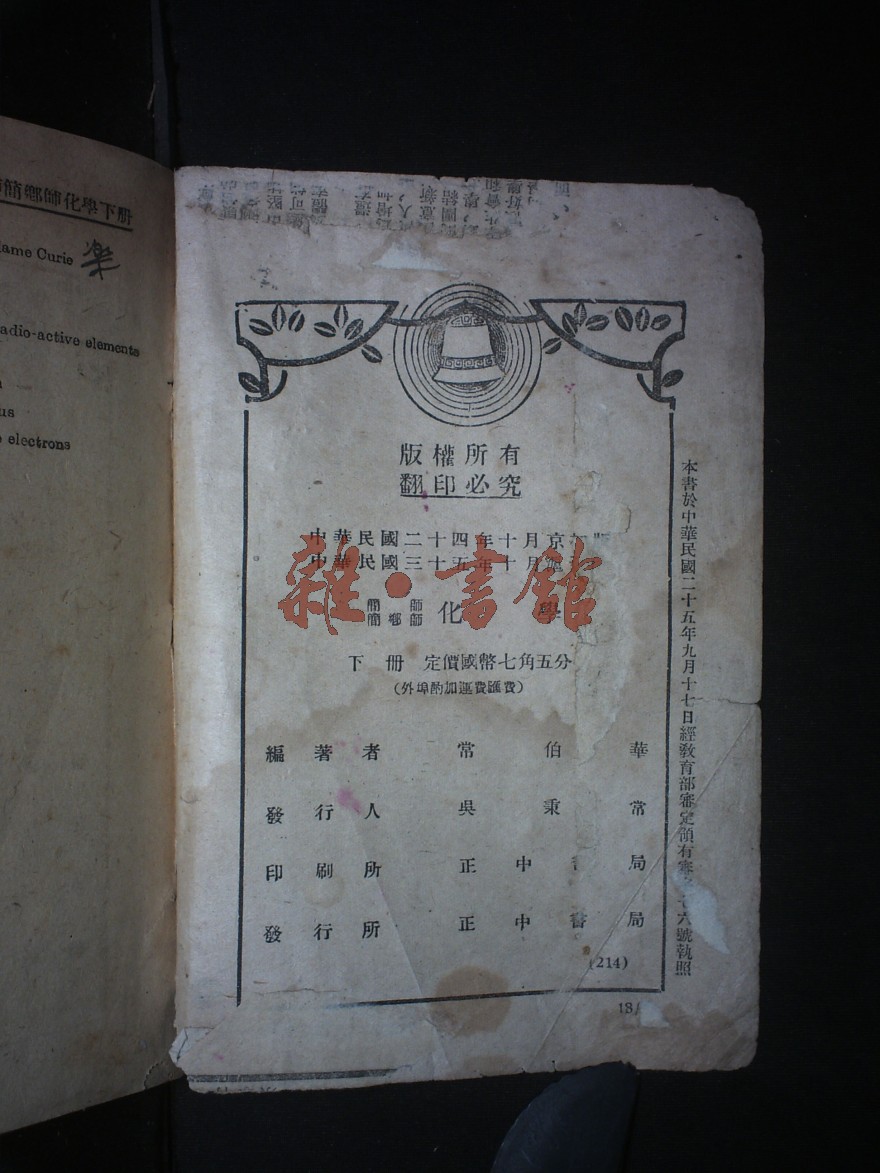 簡鄉師化學下册
ame Curie
adio-active elements
us
electrons
版權所有
翻印必究
中華民國二十四年十月京
中華民國三十五年十月
雜·書館
簡師
簡鄉師
化學
下册 定價國幣七角五分
(外埠酌加運費匯費)
編著者 常伯華
發行人 吳秉常
印刷所 正中書局
發行所 正中書局
(214)
本書於中華民國二十五年九月十七日經教育部審定領有審 六號執照